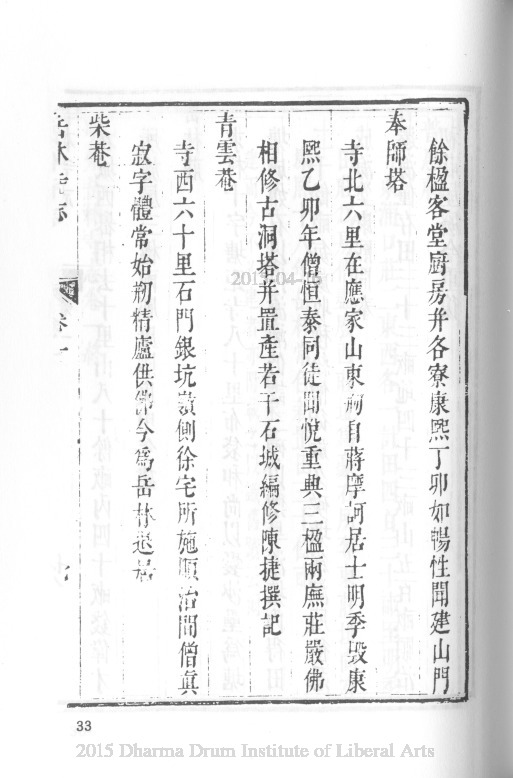 餘楹客堂厨房并各寮康熙丁卯如暢性聞建山門
奉師塔
寺北六里在應家山東剏自蔣摩訶居士明季毁康
熙乙卯年僧恒泰同徒聞悅重興三楹兩廡莊嚴佛
相修古洞塔并置產若干石城編修陳捷撰記
青雲菴
寺西六十里石門銀坑嶺側徐宅所施順治間僧眞
寂字體常始剏精廬供佛今爲岳林退居
柴菴
岳林寺志
卷一
33
2015 Dharma Drum Institute of Liberal Arts